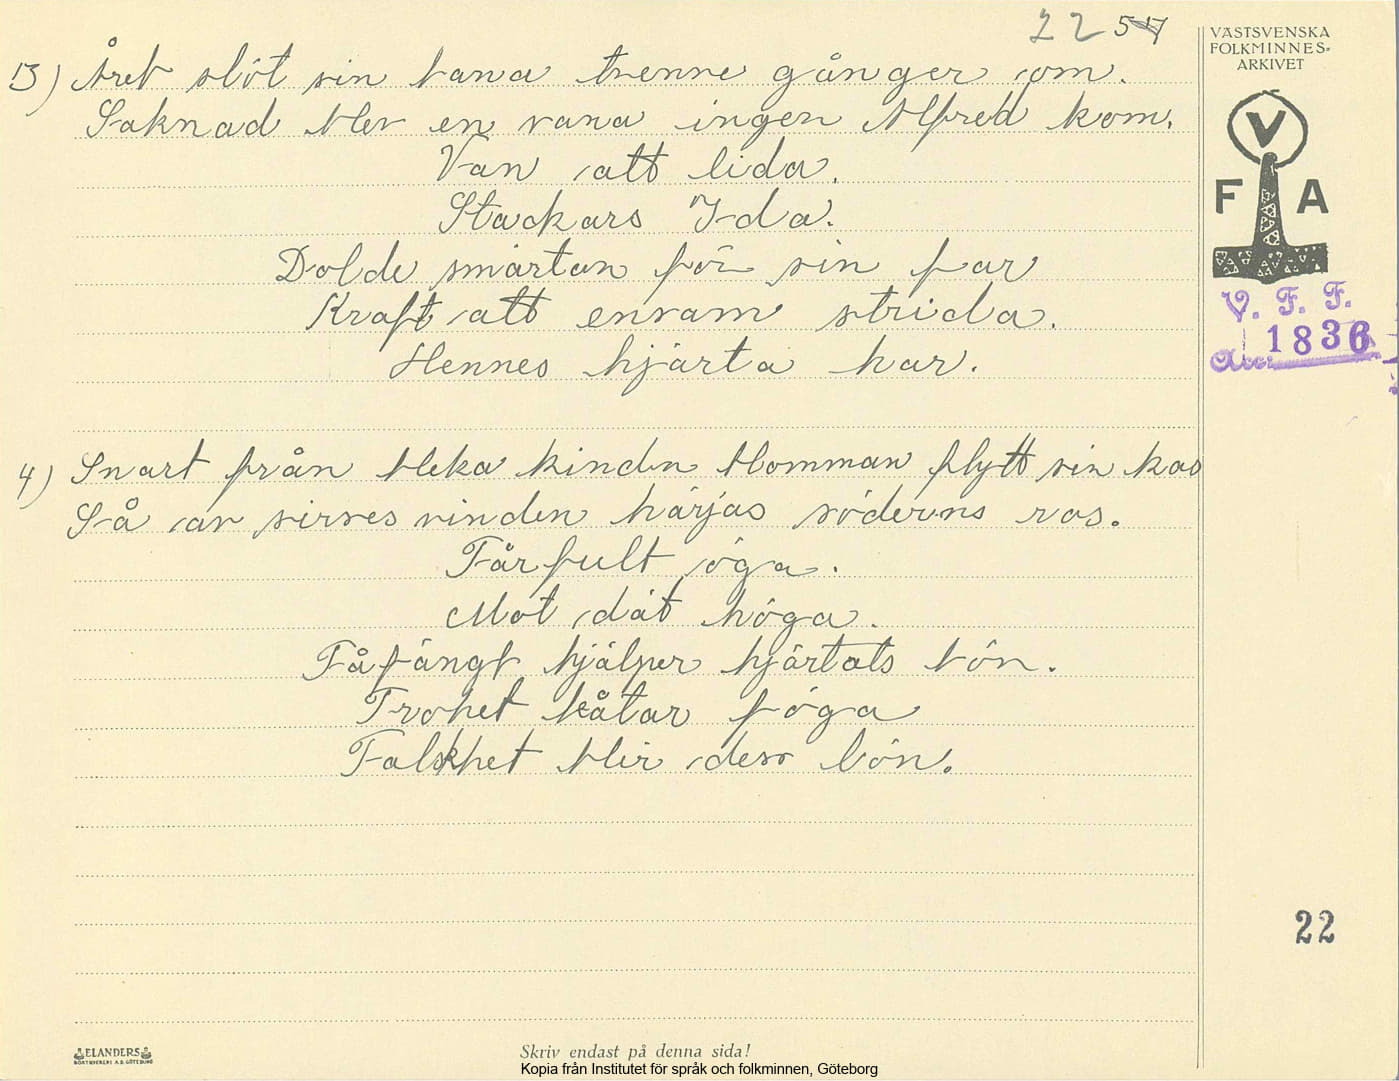 22 57
VÄSTSVENSKA
FOLKMINNES-
ARKIVET
3) Året slöt sin bana trenne gånger om.
Saknad blev en vana ingen Alfred kom.
Van att lida.
Stackars Ida.
Dolde smärtan för sin far
Kraft att ensam strida.
Hennes hjärta har.
V
F A
V. F. F.
Acc: 1836
4) Snart från bleka kinden blomman flytt sin kos
Så av sirves vinden härjas söderns ros.
Tårfult öga.
Mot dät höga.
Fåfängt hjälper hjärtats bön.
Trohet båtar föga
Falskhet blir dess lön.
22
ELANDERS
Skriv endast på denna sida!
Kopia från Institutet för språk och folkminnen, Göteborg